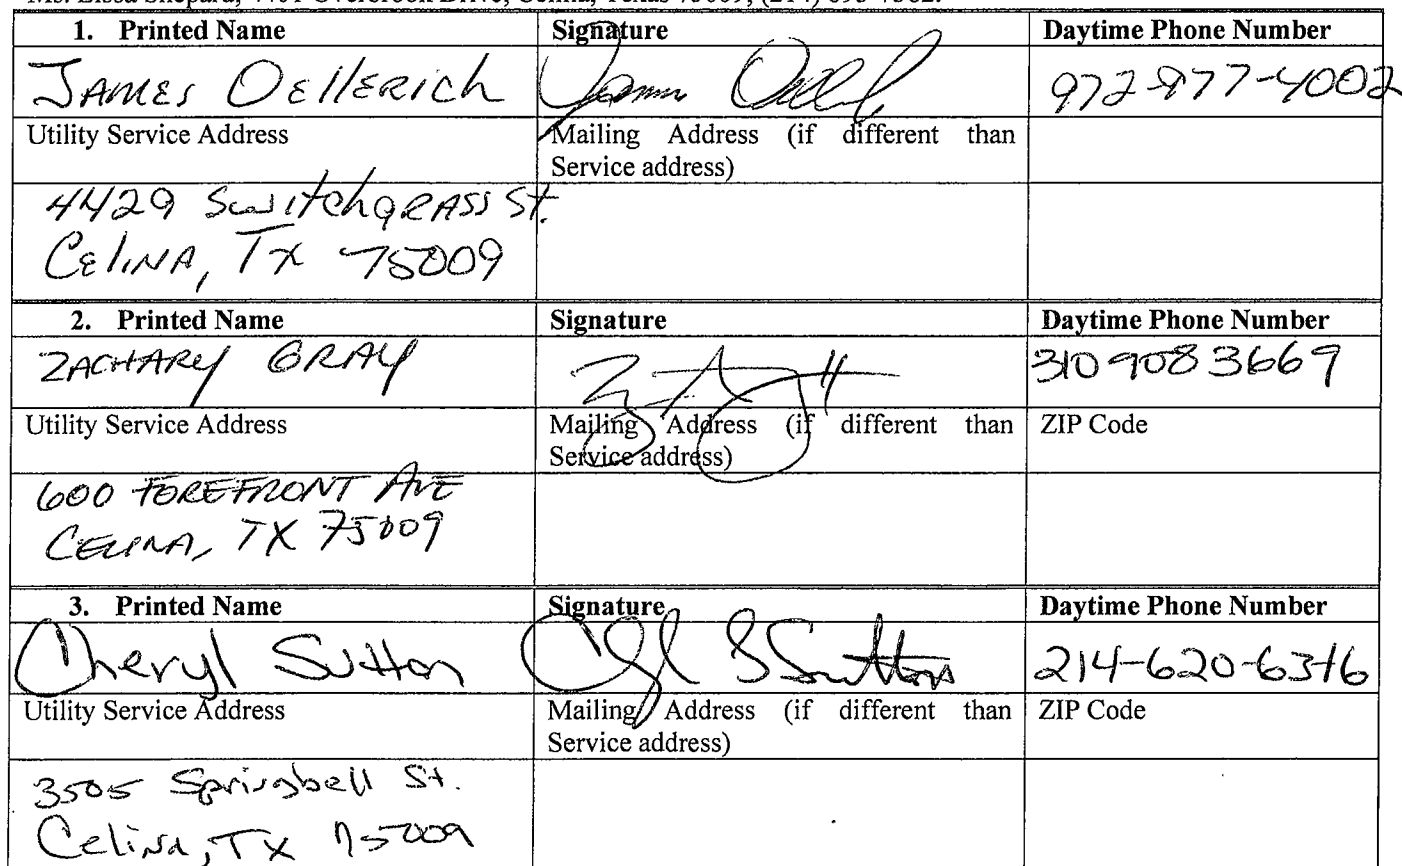 1. Printed Name Signature Daytime Phone Number
JAMES OELLERICH 972-977-4002
Utility Service Address Mailing Address (if different than
Service address)
4429 Switchgrass St.
Celina, Tx 75009
2. Printed Name Signature Daytime Phone Number
ZACHARY GRAY 3109083669
Utility Service Address Mailing Address (if different than ZIP Code
Service address)
600 FOREFRONT AVE
CELINA, TX 75009
3. Printed Name Signature Daytime Phone Number
Cheryl Sutton Sutton 214-620-6316
Utility Service Address Mailing Address (if different than ZIP Code
Service address)
3505 Springbell St.
Celina, TX 75009